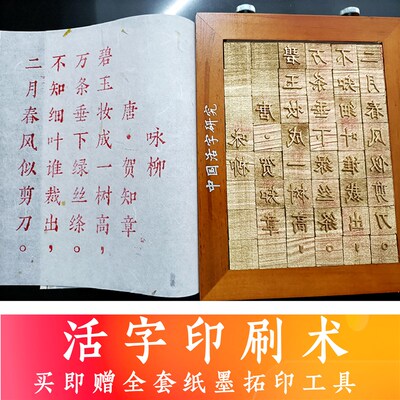 咏柳
唐·贺知章
碧玉妆成一树高，
万条垂下绿丝绦。
不知细叶谁裁出，
二月春风似剪刀。
中国活字研究
咏柳
唐·贺知章
碧玉妆成一树高，
万条垂下绿丝绦。
不知细叶谁裁出，
二月春风似剪刀。
活字印刷术
买即赠全套纸墨拓印工具